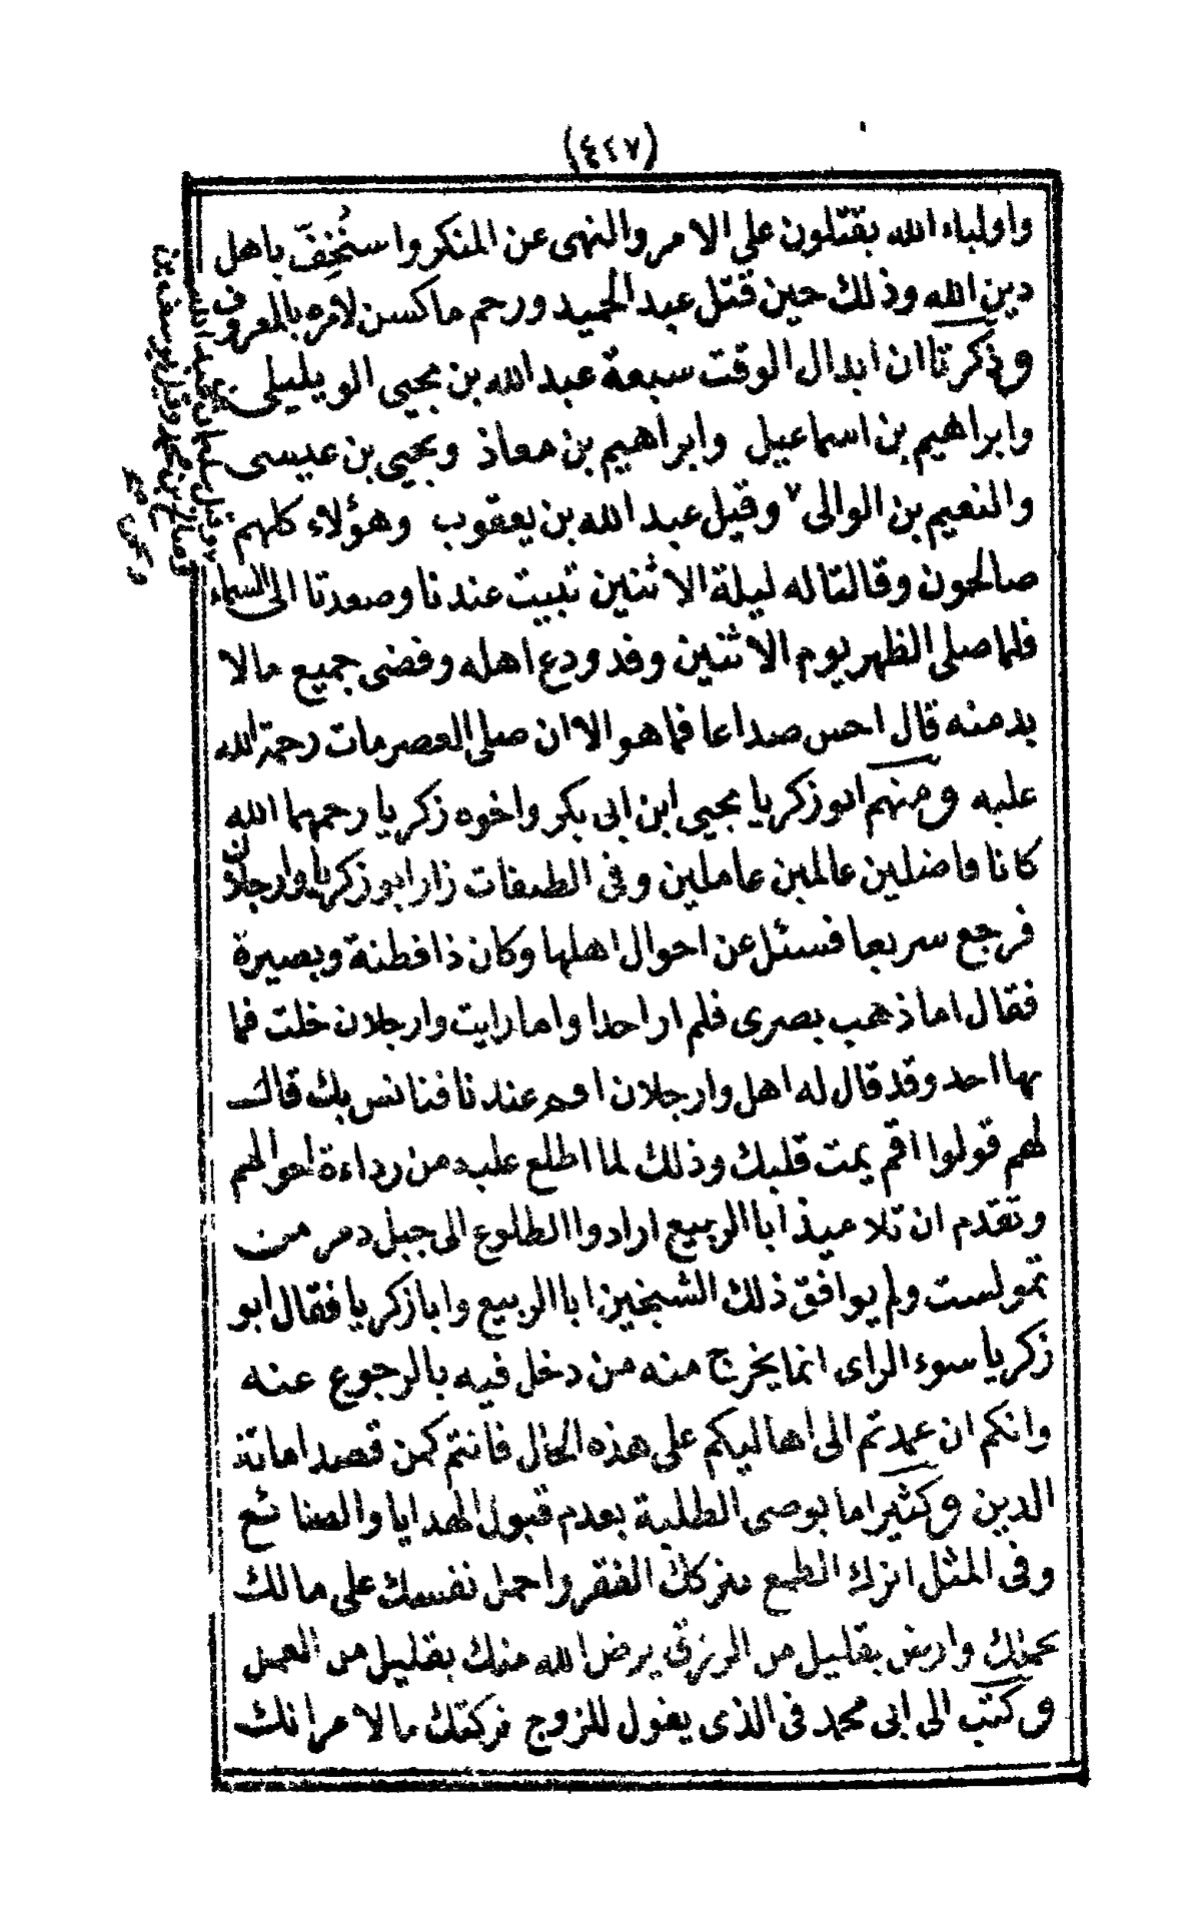 (٤٤٧)
واولياء الله يقتلون على الامر والنهى عن المنكر واستُخِفّ باهل
دين الله وذلك حين قتل عبد الحميد ورحم ماكسن لامره بالمعروف
وذكرتا ان ابدال الوقت سبعة عبد الله بن يحيى الويليلى
وابراهيم بن اسماعيل وابراهيم بن معاذ ويحيى بن عيسى
والنعيم بن الوالى ٧ وقيل عبد الله بن يعقوب وهؤلاء كلهم
صالحون وقالتا له ليلة الاثنين تبيت عندنا وصعدتا الى السماء
فلما صلى الظهر يوم الاثنين وقد ودع اهله وقضى جميع مالا
بد منه قال احس صداعا فما هو الا ان صلى العصر مات رحمة الله
عليه ومنهم ابو زكريا يحيى ابن ابى بكر واخوه زكريا رحمهما الله
كانا فاضلين عالمين عاملين وفى الطبقات زار ابو زكريا وارجلان
فرجع سريعا فسئل عن احوال اهلها وكان ذا فطنة وبصيرة
فقال اما ذهب بصرى فلم ار احدا واما رايت وارجلان خلت فما
بها احد وقد قال له اهل وارجلان اقم عندنا فنانس بك قال
لهم قولوا اقم يمت قلبك وذلك لما اطلع عليه من رداءة احوالهم
وتقدم ان تلاميذ ابا الربيع ارادوا الطلوع الى جبل دمر من
تمولست ولم يوافق ذلك الشيخين ابا الربيع وابا زكريا فقال ابو
زكريا سوء الراى انما يخرج منه من دخل فيه بالرجوع عنه
وانكم ان عمدتم الى اهاليكم على هذه الحال فانتم كمن قصد اماتة
الدين وكثيرا ما يوصى الطلبة بعدم قبول الهدايا والصنائع
وفى المثل اترك الطمع يتركك الفقر واحمل نفسك على مالك
يحملك وارض بقليل من الرزق يرض الله منك بقليل من العمل
وكتب الى ابى محمد فى الذى يقول للزوج تركتك مالا مرانك